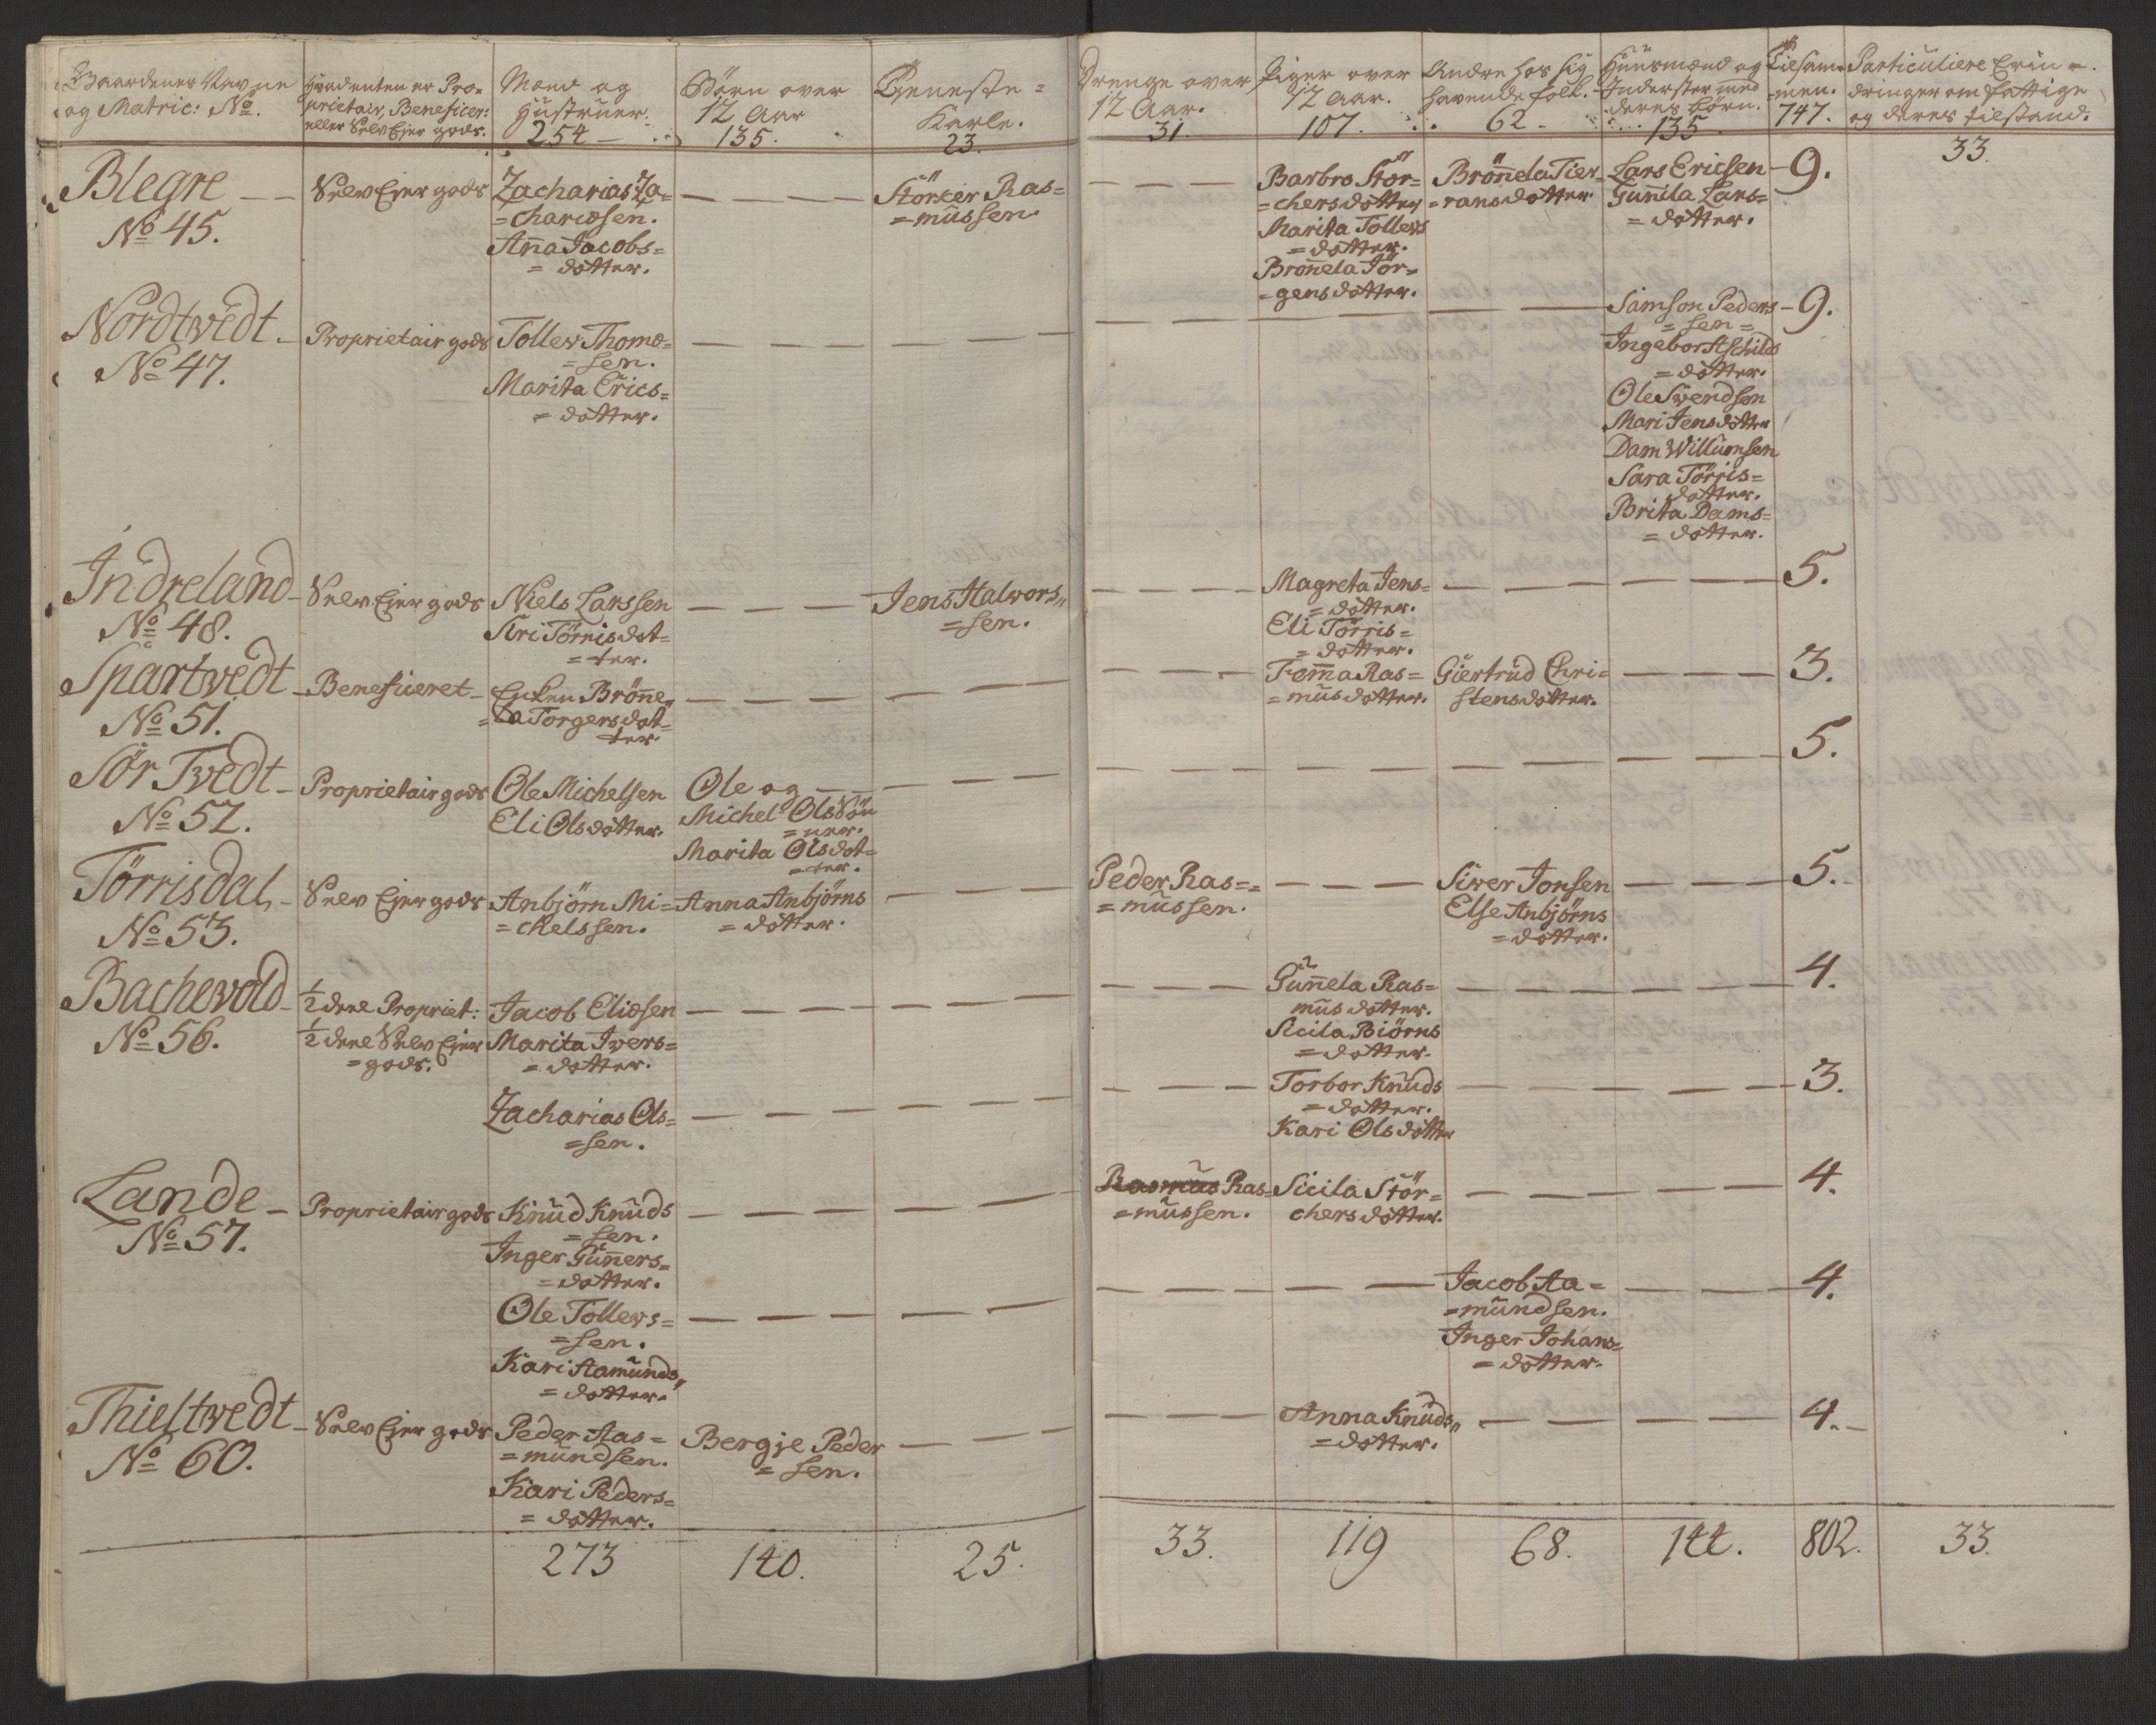 Gaardenes Navne og Matric: No.
Hvadenten er Proprietair, Beneficer: eller Selv Ejer gods.
Mænd og Hustruer. 254
Børn over 12 Aar 135.
Tjeneste= Karle. 23.
Drenge over 12 Aar. 31.
Piger over 12 Aar. 107.
Andre hos sig havende folk. 62
Huusmænd og Inderster med deres børn. 135
Tilsammen. 747.
Particuliere Erindringer om fattige og deres tilstand.
33.
Blegre
No 45.
Selv Ejer gods
Zacharias Za=
=chariæsen.
Anna Jacobs=
=dotter.
Störker Ras=
=mussen.
Barbro Stör=
=chersdotter
Marita Tollevs
=dotter.
Bronnela Jör=
=gensdotter.
Brönnela Tier=
=ransdotter.
Lars Ericsen
Gunnila Lars=
=dotter.
9.
Nordtvedt
No 47.
Proprietair gods
Tollev Thomæ=
=sen.
Marita Erics=
=dotter.
Samson Peders
=sen=
Ingebor Aschilds
=dotter.
Ole Svendsen
Mari Jensdotter
Dam Willumsen
Sara Törris=
dotter.
Brita Dams=
=dotter.
9.
Indreland
No 48.
Selv Ejer gods
Niels Larssen
Siri Törrisdot=
=ter.
Jens Halvors
=sen.
Magreta Jens=
=dotter.
Eli Törris=
=dotter.
5.
Spartvedt
No 51.
Beneficeret
Enken Brönne
=la Torgersdot=
ter.
Femma Ras=
=musdotter.
Giertrud Chri=
stensdotter.
3.
Sör Tvedt
No 52.
Proprietair gods
Ole Michelsen
Eli Olsdotter.
Ole og
Michel Ols Sön
=ner.
Marita Olsdot=
=ter.
5.
Törrisdal
No 53.
Selv Ejer gods
Anbjörn Mi=
=chelssen.
Anna Anbjörns
=dotter.
Peder Ras=
=mussen.
Siver Jonsen
Else Anbjörns
=dotter.
5.
Bachevold
No 56.
½ deel Propriet:
½ deel Selv Ejer
=gods.
Jacob Eliæsen
Marita Ivers=
=dotter.
Gunnela Ras=
musdotter.
Sicila Biörns
=dotter.
4.
Zacharias Ols=
=sen.
Torbor Knuds
=dotter.
Kari Olsdotter
3.
Lande
No 57.
Proprietair gods
Knud Knuds
=sen.
Inger Gunners=
=dotter.
Rasmus Ras=
=mussen.
Sicila Stör=
chersdotter.
4.
Ole Tollevs=
=sen.
Kari Aamunds
=dotter.
Jacob Aa=
=mundsen.
Inger Johans=
=dotter.
4.
Thieltvedt
No 60.
Selv Ejer gods
Peder Aas=
=mundsen.
Kari Peders=
=dotter.
Bergje Peder
=sen.
Anna Knuds
=dotter.
4.
273 140. 25. 33. 119 68. 144. 802. 33.